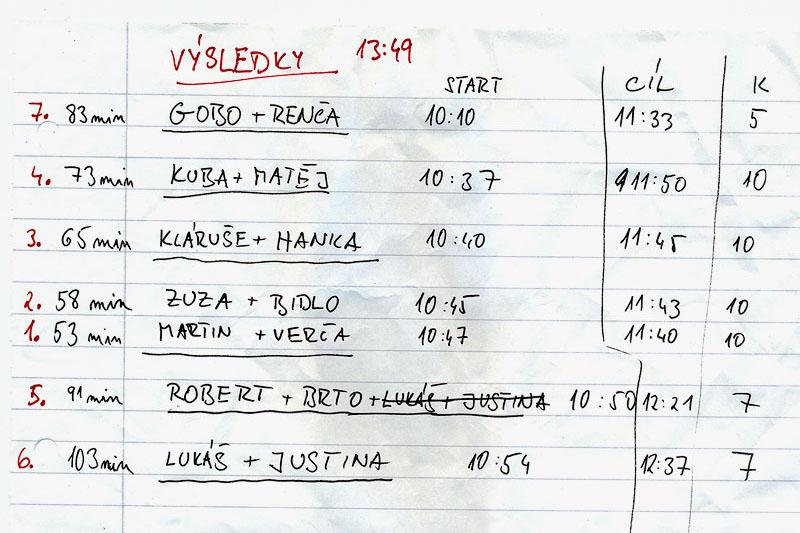 VÝSLEDKY 13:49
START CÍL K
7. 83min GOBO + RENČA 10:10 11:33 5
4. 73min KUBA + MATĚJ 10:37 11:50 10
3. 65min KLÁRUŠE + HANKA 10:40 11:45 10
2. 58 min ZUZA + BIDLO 10:45 11:43 10
1. 53 min MARTIN + VERČA 10:47 11:40 10
5. 91min ROBERT + BRTO + LUKÁŠ + JUSTINA 10:50 12:21 7
6. 103min LUKÁŠ + JUSTINA 10:54 12:37 7